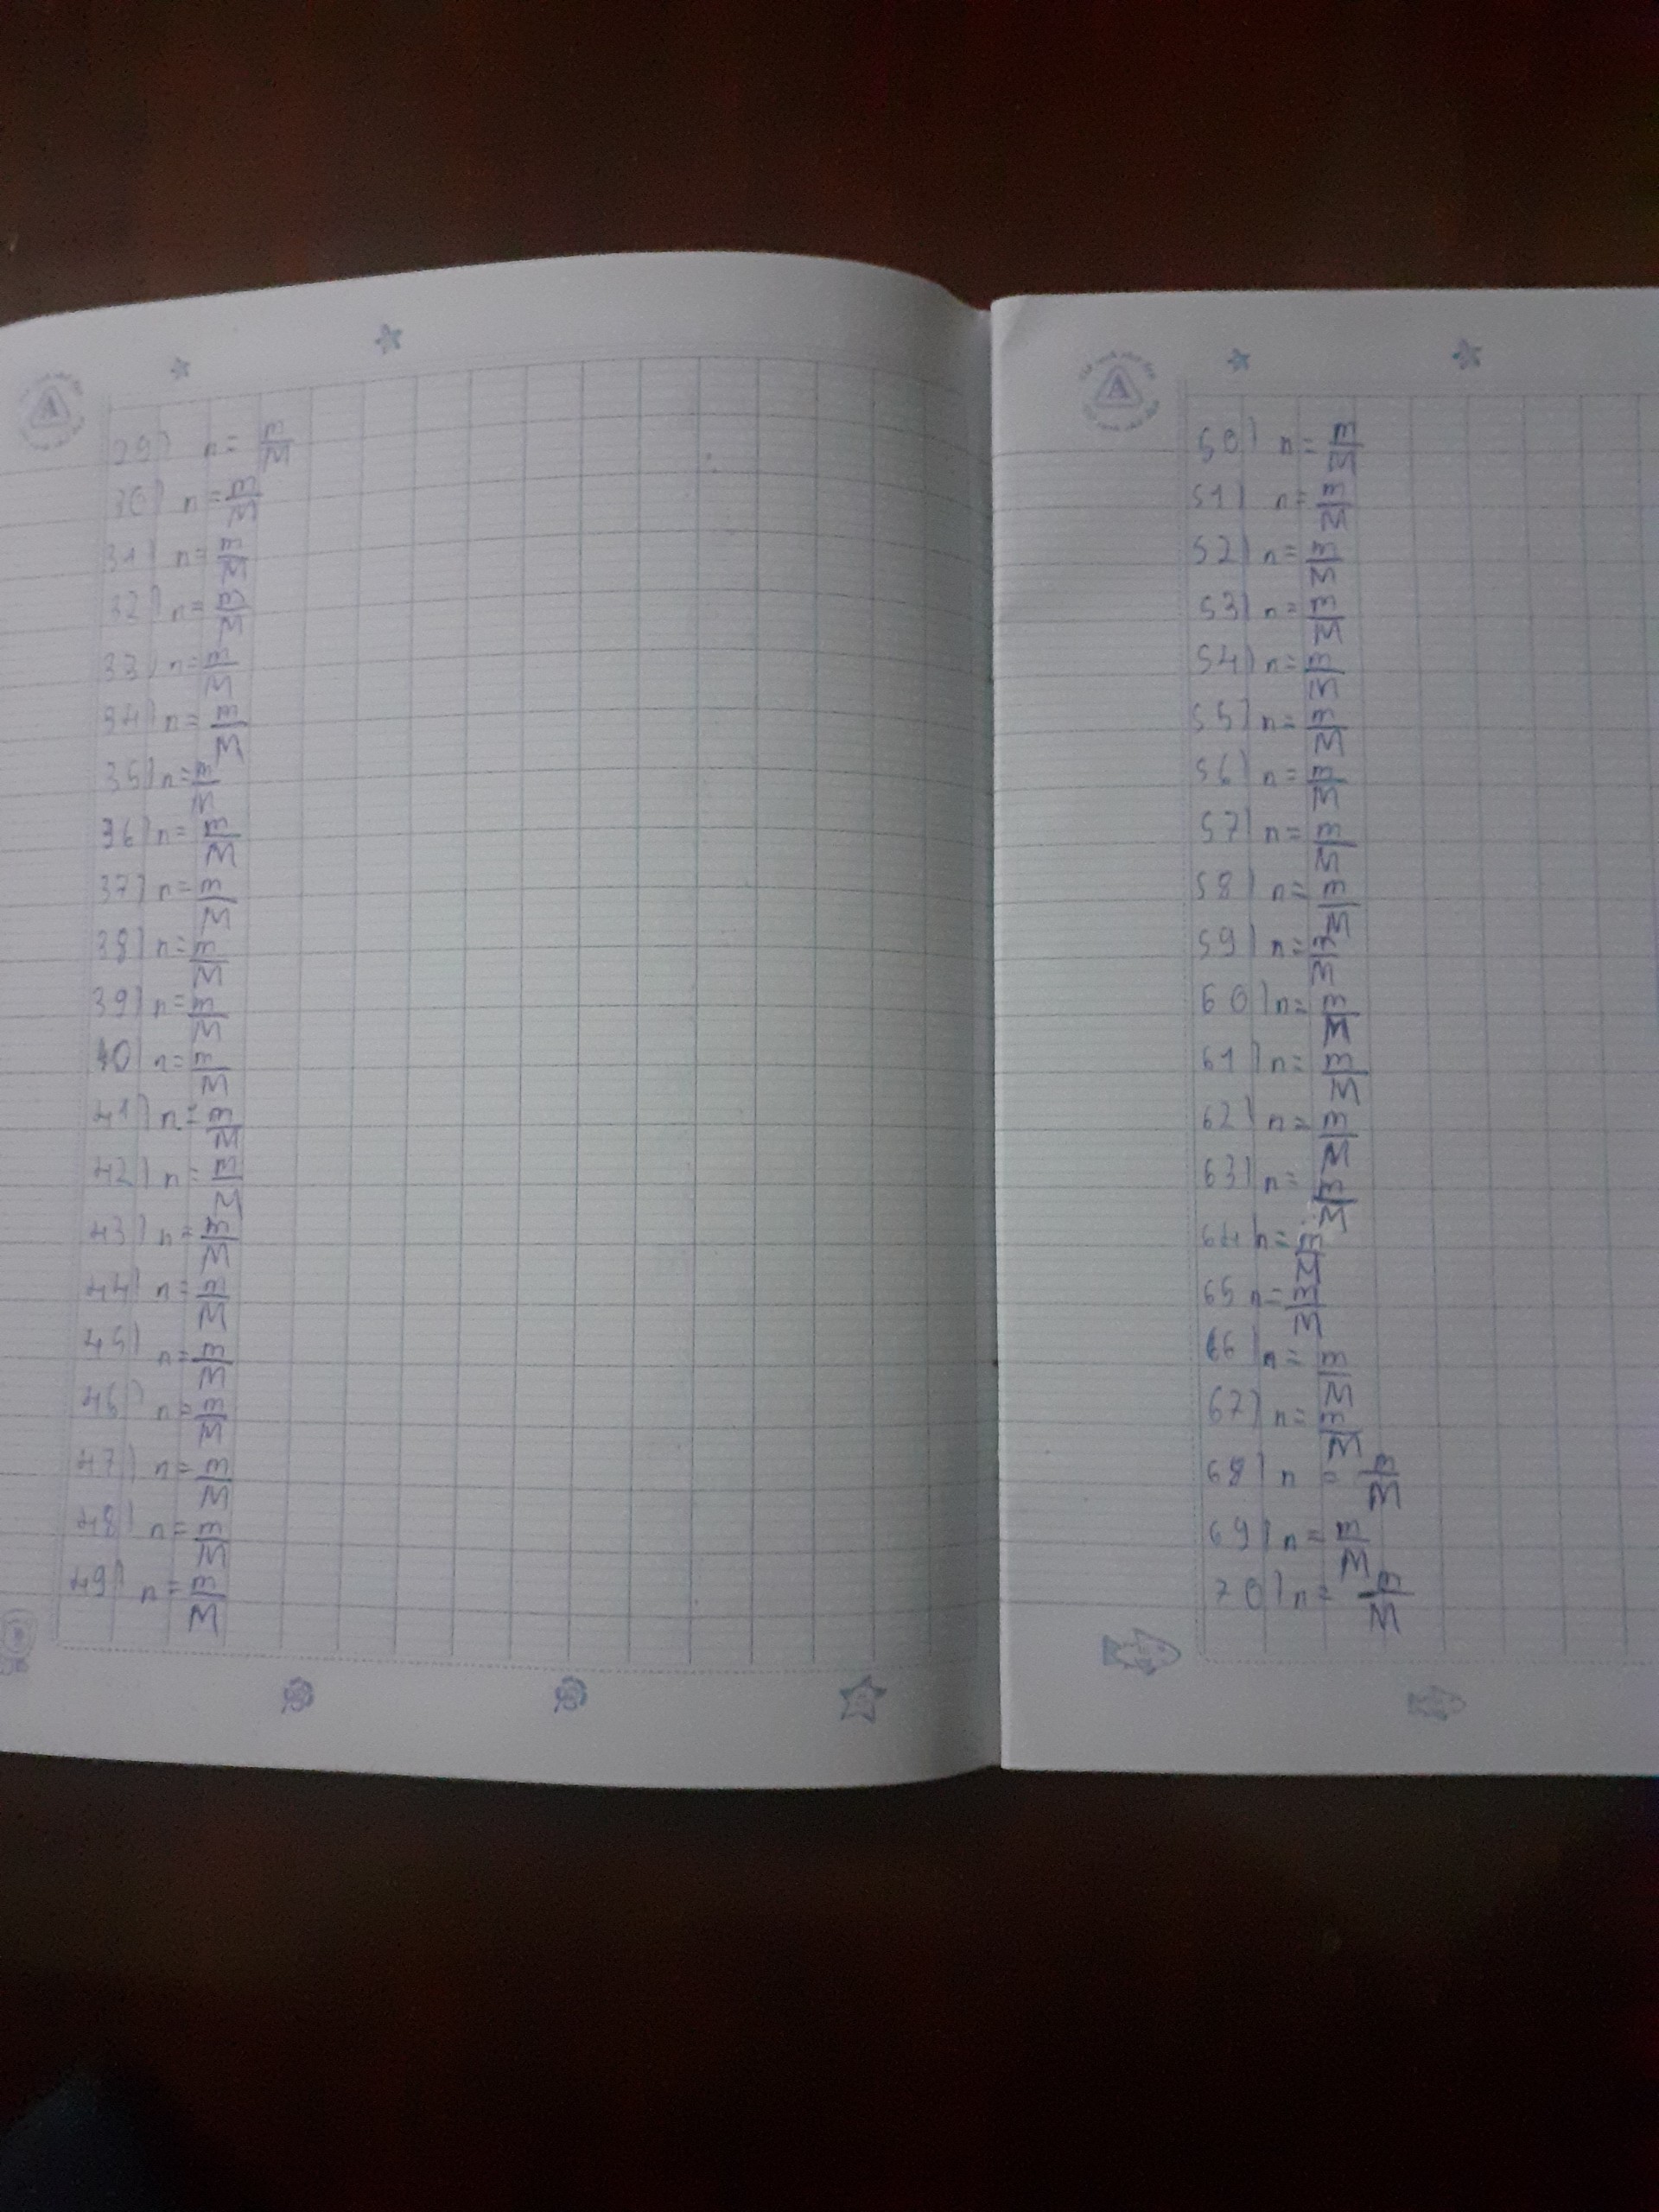 29) n = m/M
30) n = m/M
31) n = m/M
32) n = m/M
33) n = m/M
34) n = m/M
35) n = m/M
36) n = m/M
37) n = m/M
38) n = m/M
39) n = m/M
40) n = m/M
41) n = m/M
42) n = m/M
43) n = m/M
44) n = m/M
45) n = m/M
46) n = m/M
47) n = m/M
48) n = m/M
49) n = m/M
50) n = m/M
51) n = m/M
52) n = m/M
53) n = m/M
54) n = m/M
55) n = m/M
56) n = m/M
57) n = m/M
58) n = m/M
59) n = m/M
60) n = m/M
61) n = m/M
62) n = m/M
63) n = m/M
64 n = m/M
65 n = m/M
66) n = m/M
67) n = m/M
68) n = m/M
69) n = m/M
70) n = m/M